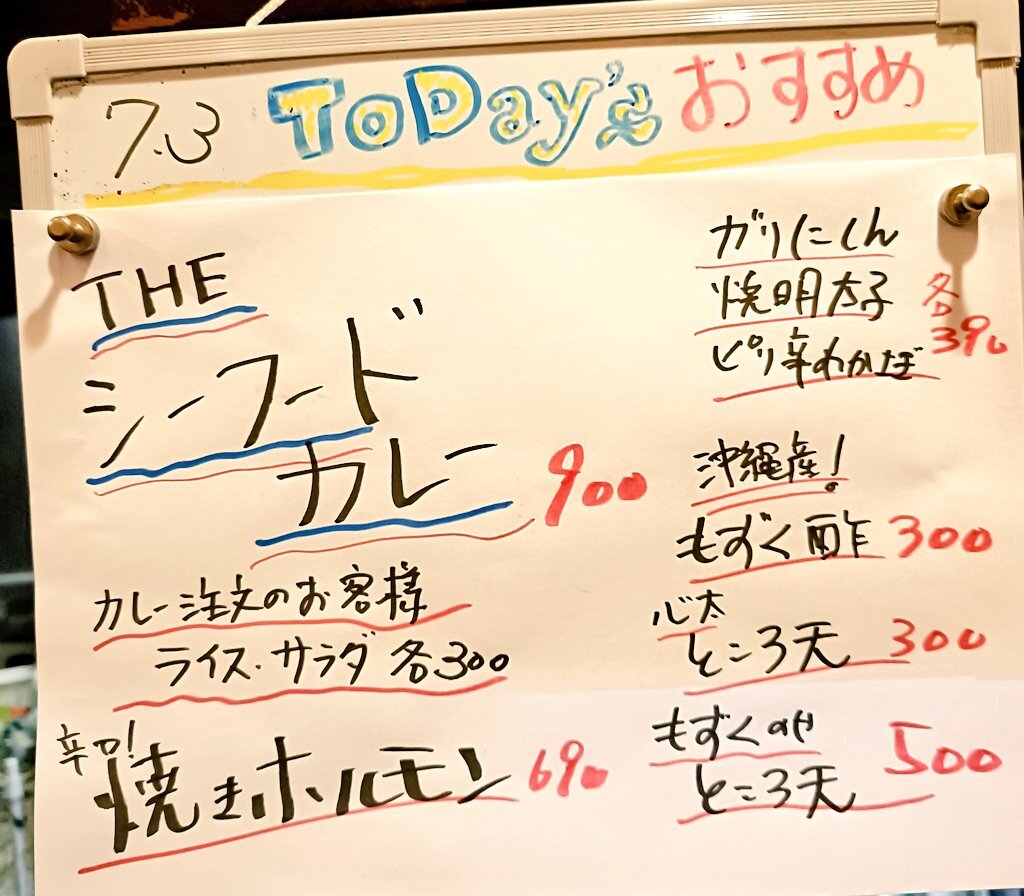 7.3 ToDay's おすすめ
THE
シーフード
カレー 900
カレー注文のお客様
ライス・サラダ 各300
辛口!
焼きホルモン 690
ガリにしん
焼明太子 各390
ピリ辛わかさぎ
沖縄産!
もずく酢 300
心太
ところ天 300
もずくのせ
ところ天 500